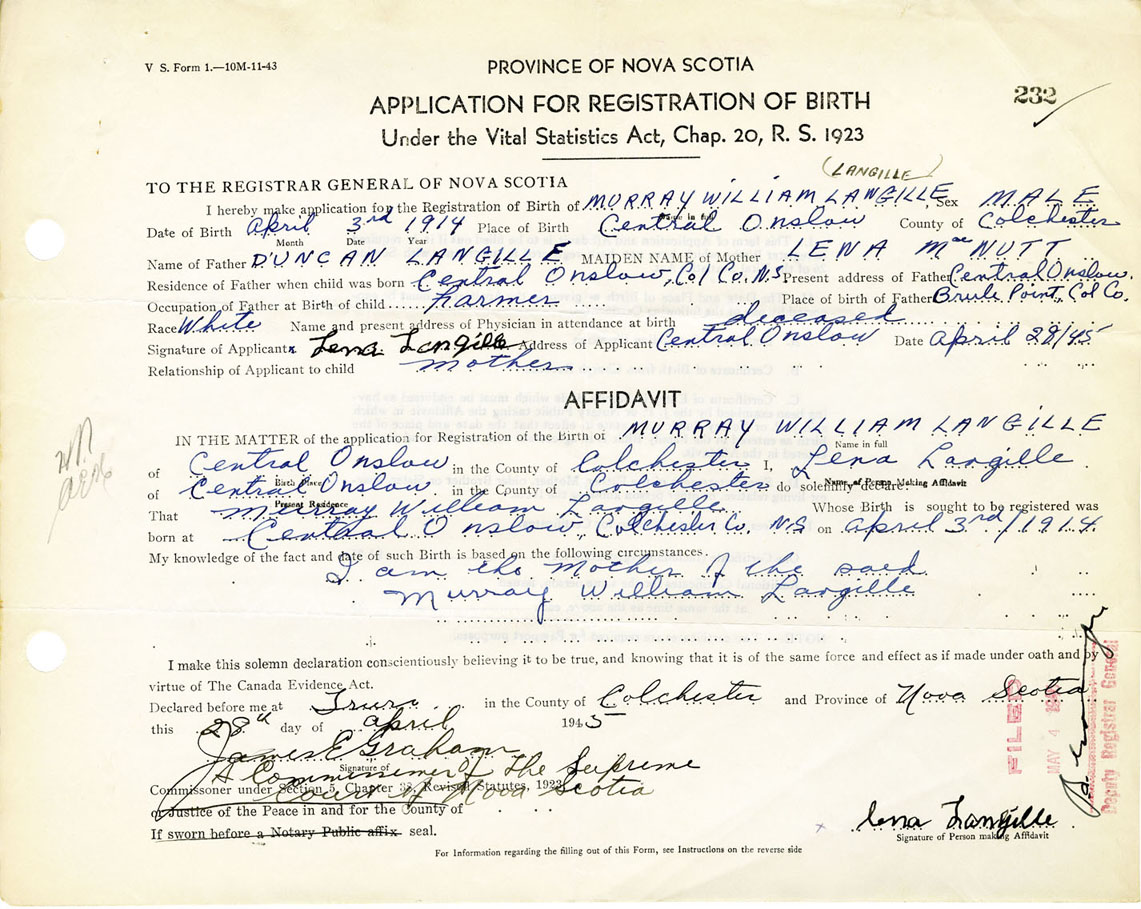 V S. Form 1.—10M-11-43
PROVINCE OF NOVA SCOTIA
232
APPLICATION FOR REGISTRATION OF BIRTH
Under the Vital Statistics Act, Chap. 20, R. S. 1923
(LANGILLE)
TO THE REGISTRAR GENERAL OF NOVA SCOTIA
I hereby make application for the Registration of Birth of MURRAY WILLIAM LANGILLE Sex MALE
Name in full
Date of Birth April 3rd 1914 Place of Birth Central Onslow County of Colchester
Month Date Year
Name of Father DUNCAN LANGILLE MAIDEN NAME of Mother LENA MacNUTT
Residence of Father when child was born Central Onslow, Col Co. N.S Present address of Father Central Onslow.
Occupation of Father at Birth of child Farmer Place of birth of Father Brule Point, Col Co.
Race White Name and present address of Physician in attendance at birth deceased
Signature of Applicant x Lena Langille Address of Applicant Central Onslow Date April 28/45
Relationship of Applicant to child mother
AFFIDAVIT
IN THE MATTER of the application for Registration of the Birth of MURRAY WILLIAM LANGILLE
Name in full
of Central Onslow in the County of Colchester I, Lena Langille
Birth Place Name of Person Making Affidavit
of Central Onslow in the County of Colchester do solemnly declare:
Present Residence
That Murray William Langille Whose Birth is sought to be registered was
born at Central Onslow, Colchester Co. N.S on April 3rd/1914
My knowledge of the fact and date of such Birth is based on the following circumstances.
I am the Mother of the said
Murray William Langille
I make this solemn declaration conscientiously believing it to be true, and knowing that it is of the same force and effect as if made under oath and by
virtue of The Canada Evidence Act.
Declared before me at Truro in the County of Colchester and Province of Nova Scotia
this 28th day of April 1945
James E Graham
Signature of
A Commissioner of The Supreme
Court of Nova Scotia
Commissioner under Section 5, Chapter 33, Revised Statutes, 1923
or Justice of the Peace in and for the County of
If sworn before a Notary Public affix seal.
FILED
MAY 4
Deputy Registrar General
x Lena Langille
Signature of Person making Affidavit
For Information regarding the filling out of this Form, see Instructions on the reverse side